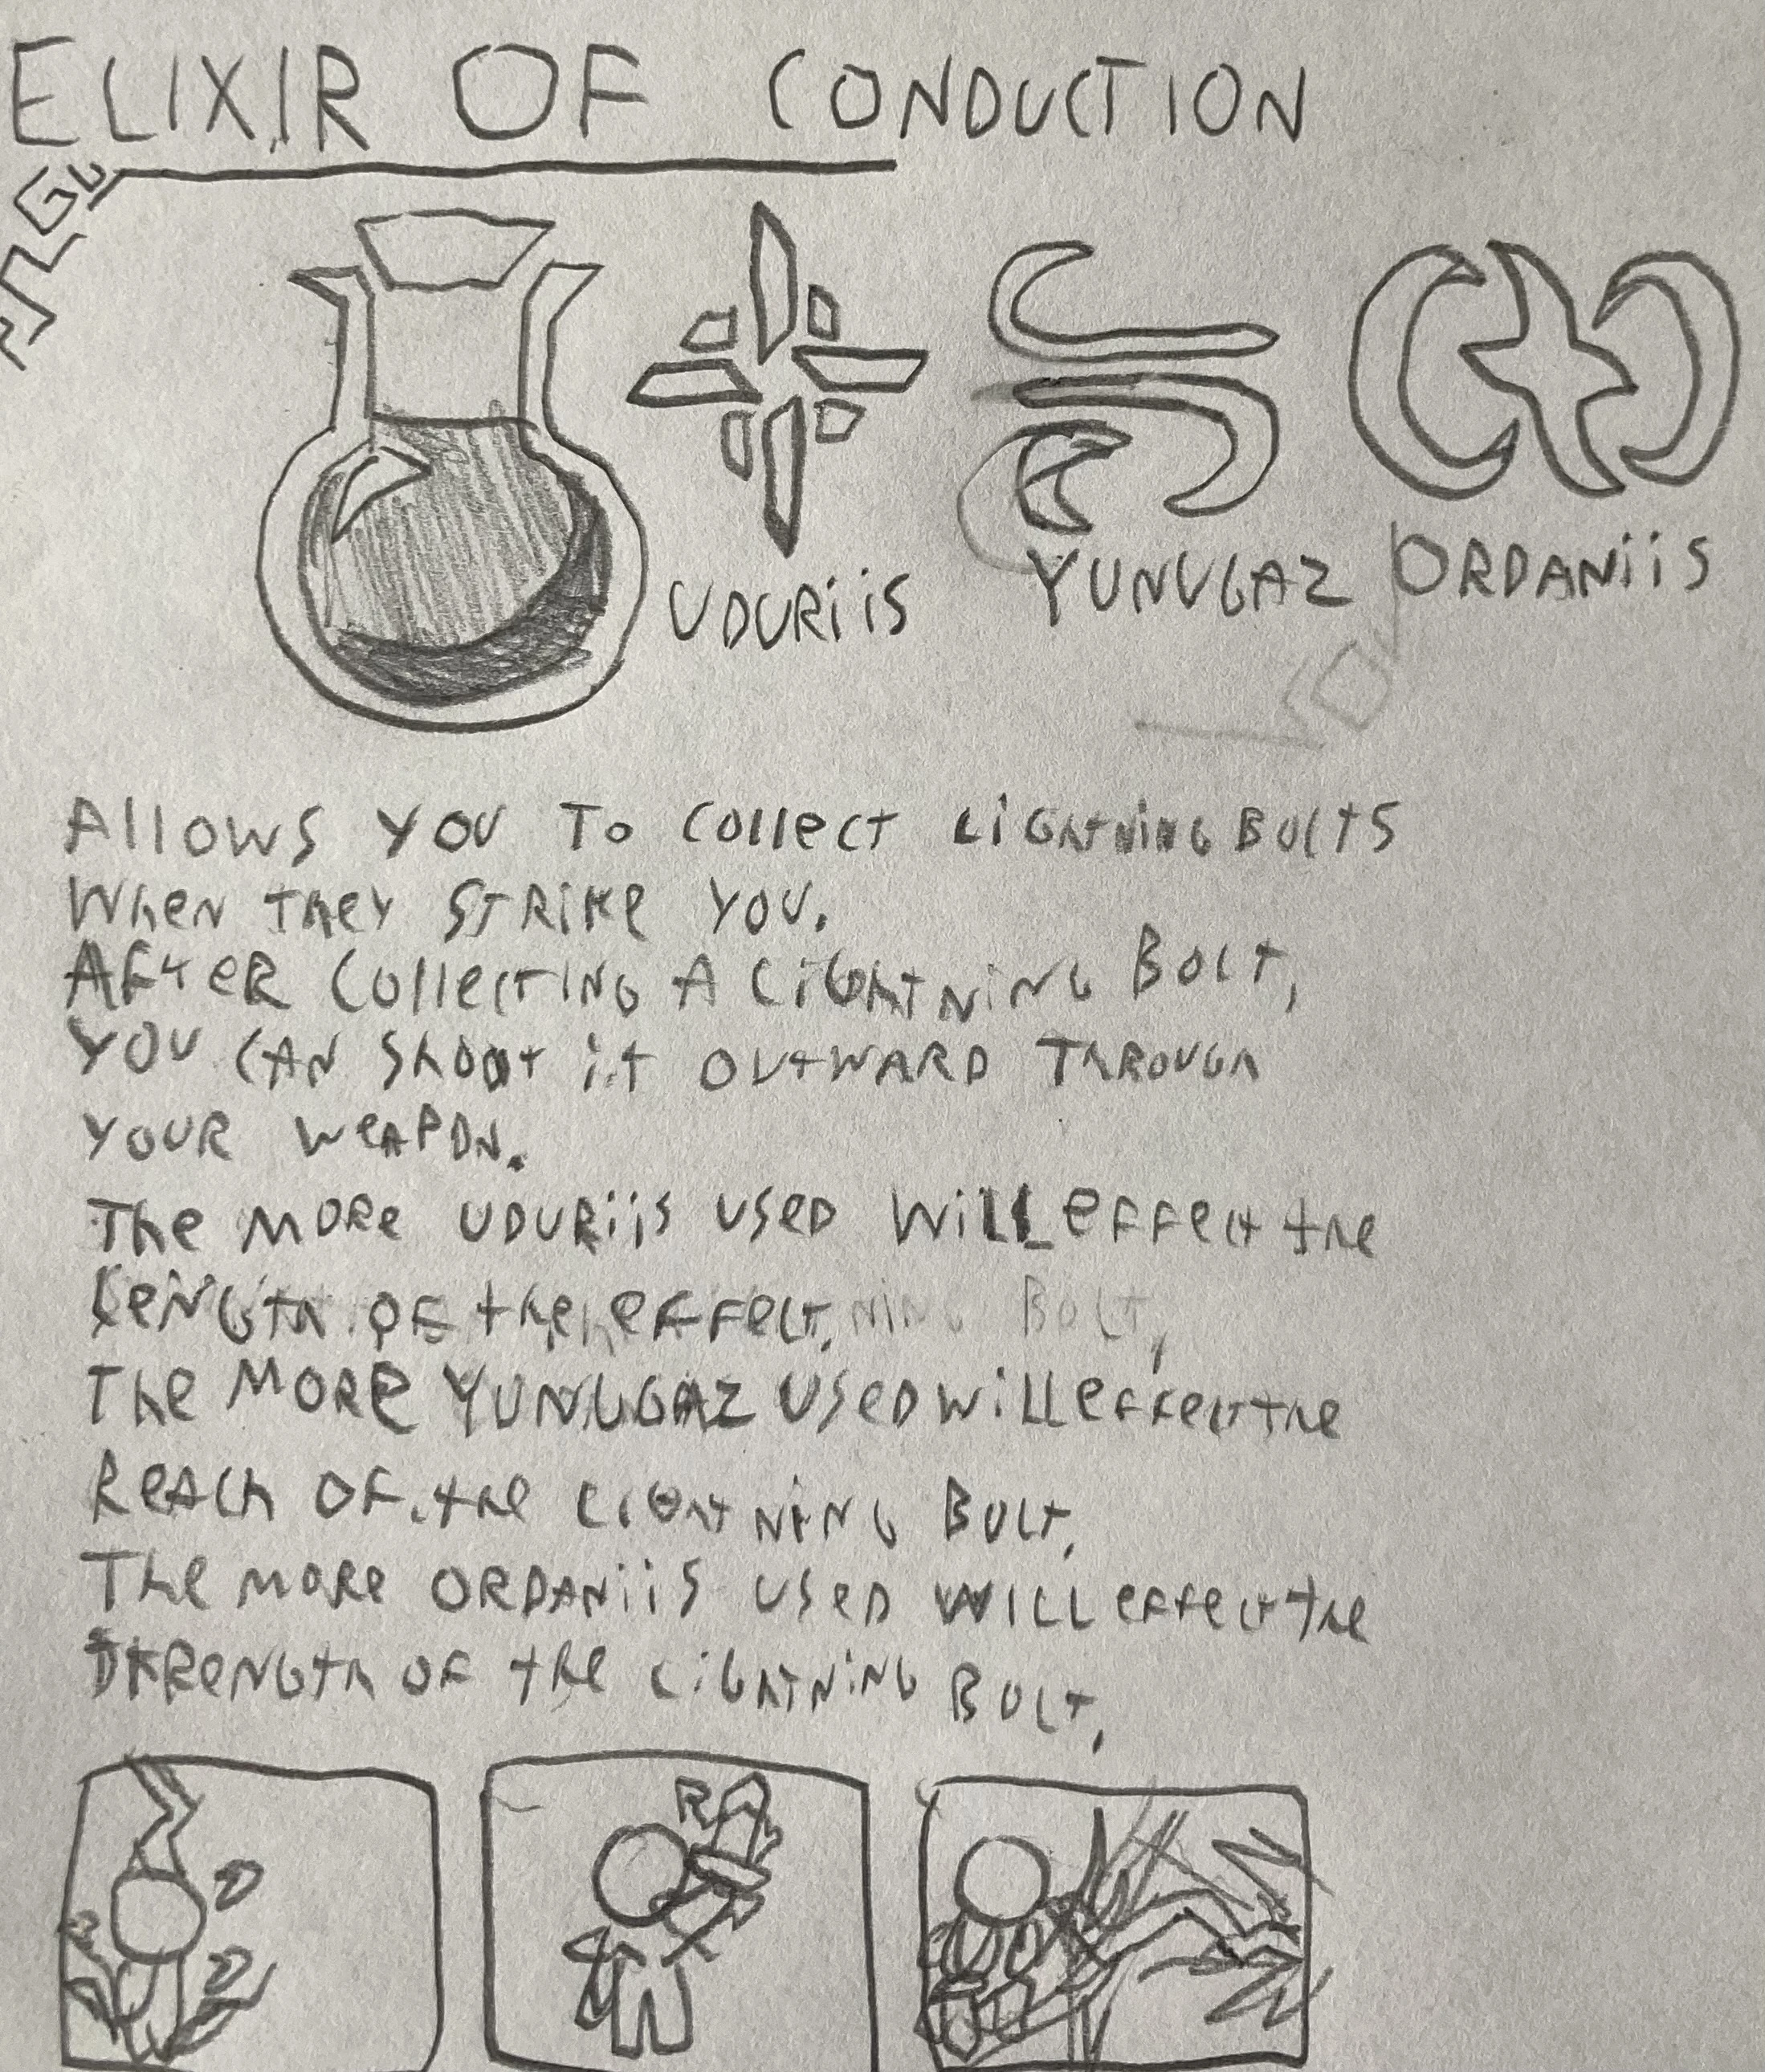 ELIXIR OF CONDUCTION
UDURiiS YUNUGAZ ORDANiiS
Allows you to collect Lightning Bolts
When they strike you.
After collecting a lightning Bolt,
you can shoot it outward through
your weapon.
The more UDURiiS used will effect the
length of the effect.
The more YUNUGAZ used will effect the
Reach of the lightning Bolt.
The more ORDANiiS used will effect the
strength of the lightning Bolt.